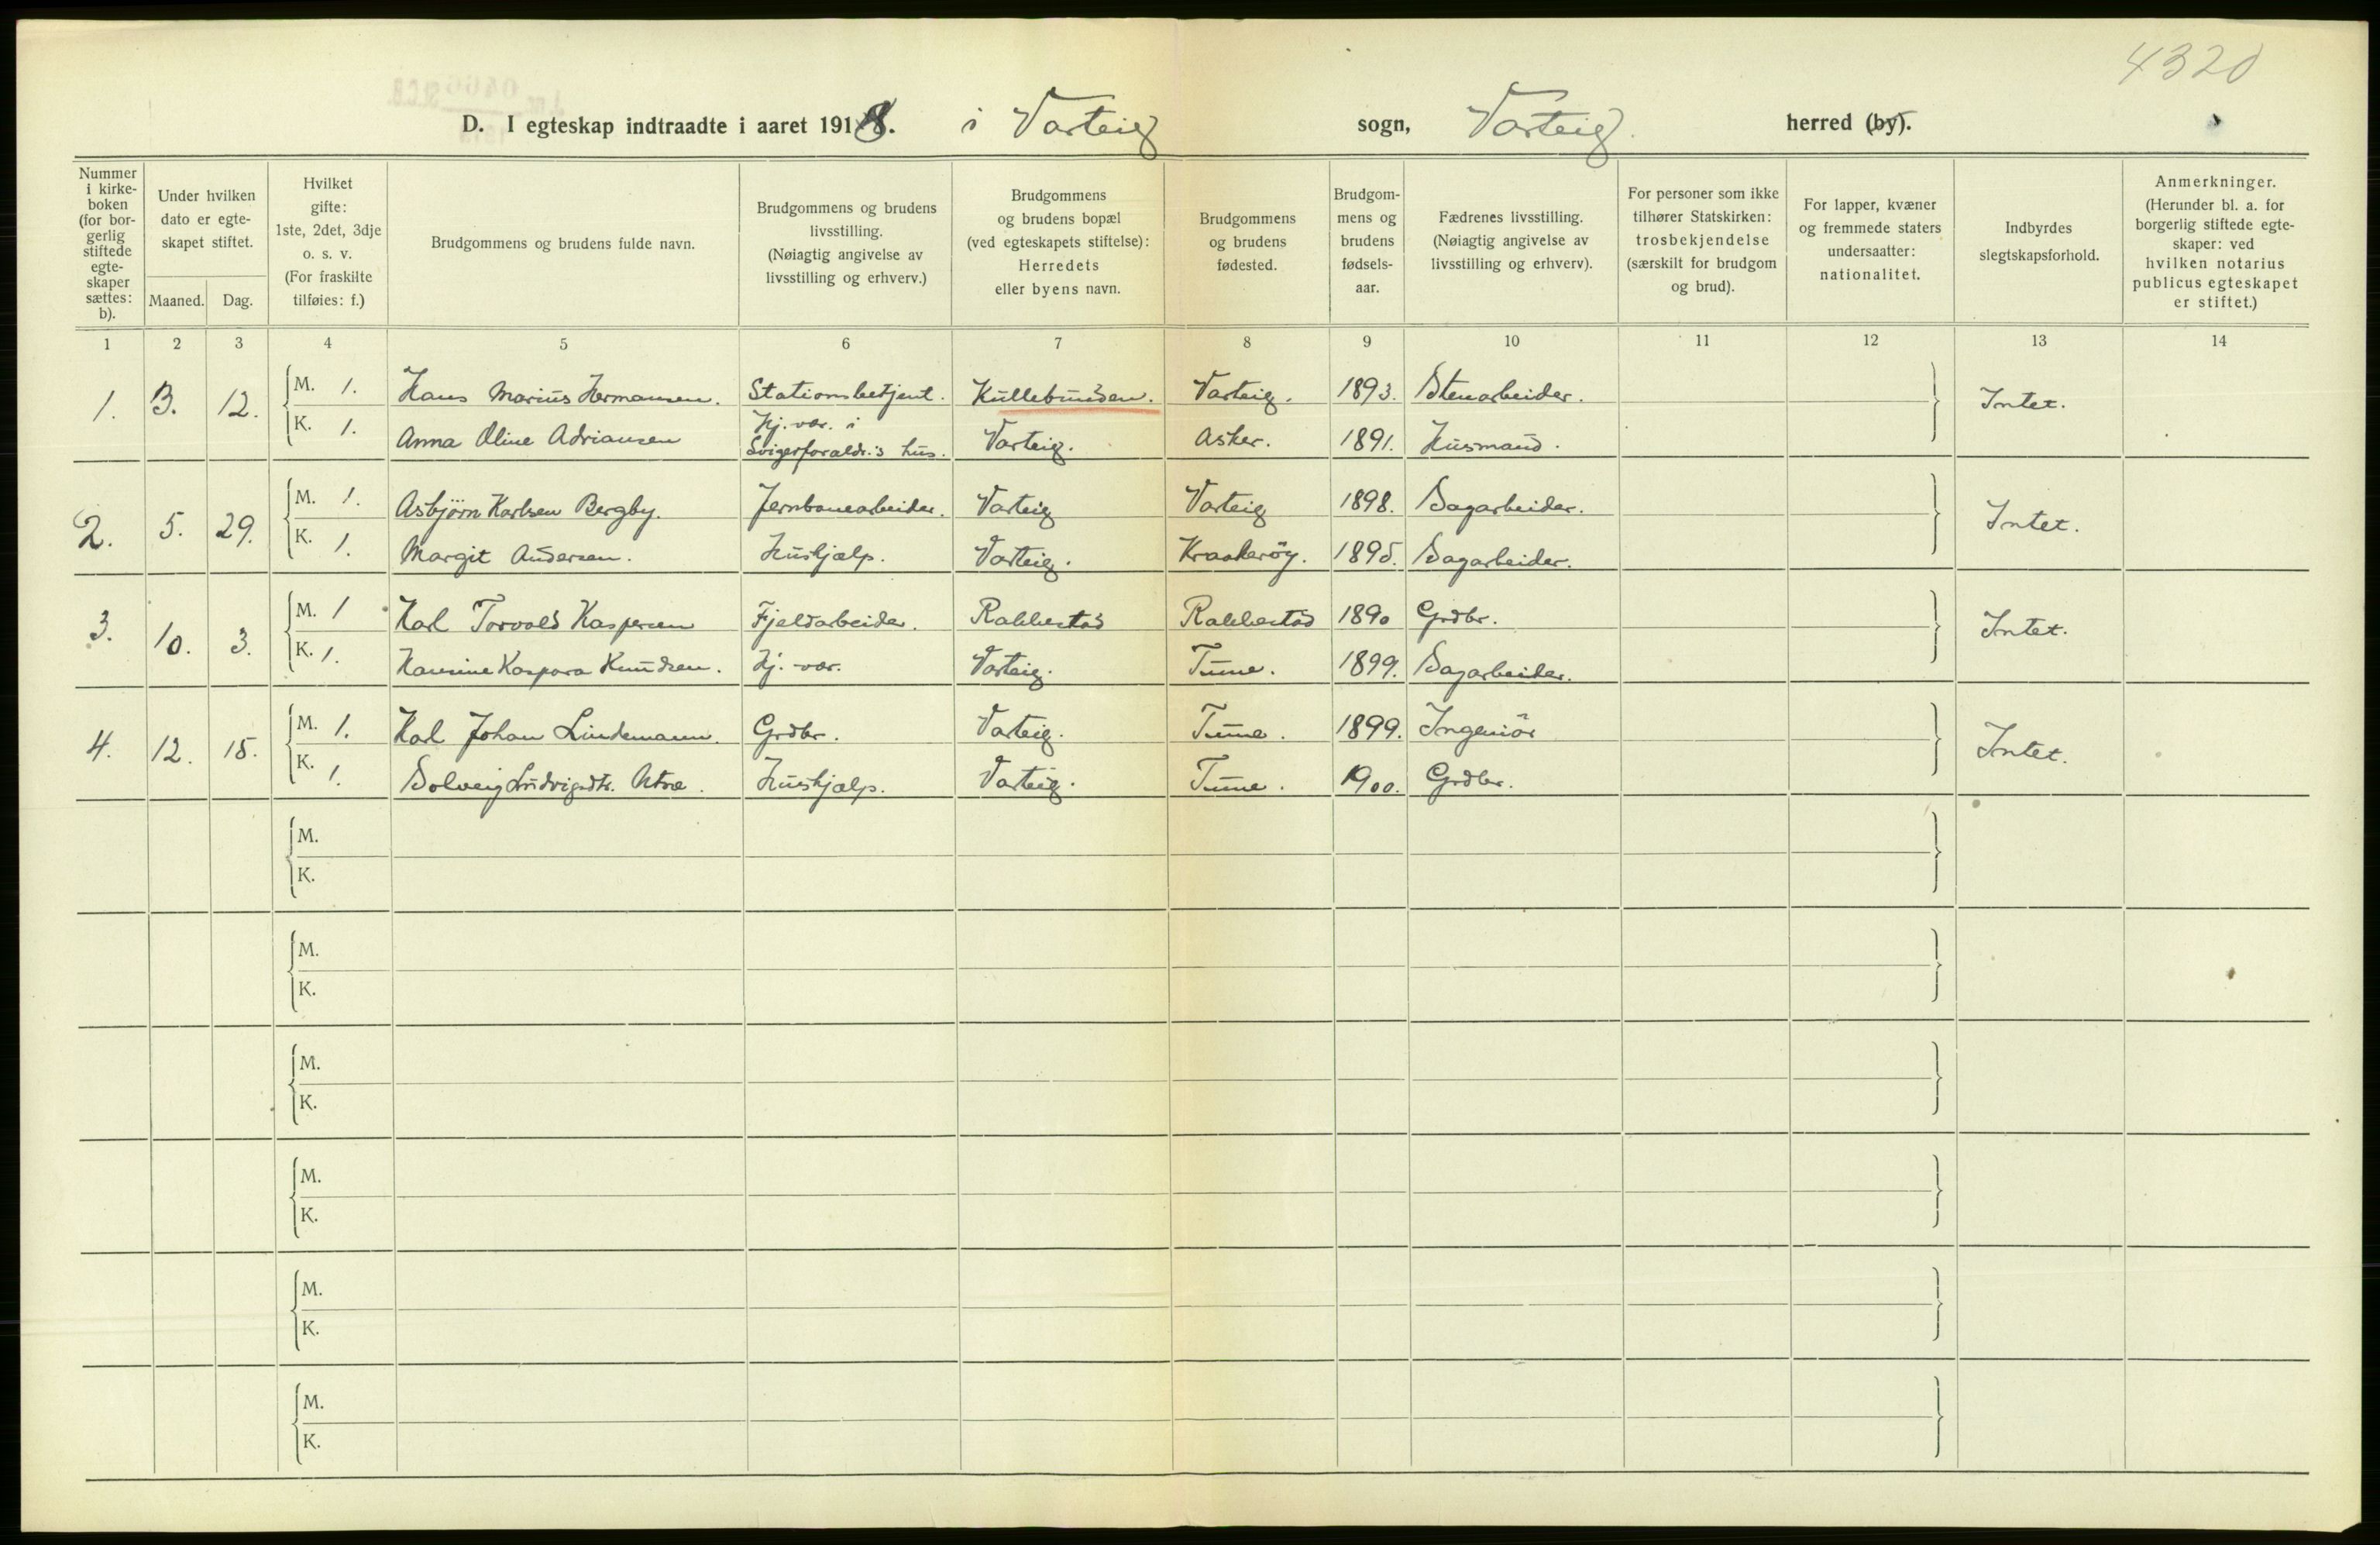 4320
D. I egteskap indtraadte i aaret 1918. i Varteig sogn, Varteig herred (by).
Nummer i kirke-boken (for bor-gerlig stiftede egte-skaper sættes: b).
Under hvilken dato er egte-skapet stiftet.
Maaned. Dag.
Hvilket gifte: 1ste, 2det, 3dje o. s. v. (For fraskilte tilføies: f.)
Brudgommens og brudens fulde navn.
Brudgommens og brudens livsstilling. (Nøiagtig angivelse av livsstilling og erhverv.)
Brudgommens og brudens bopæl (ved egteskapets stiftelse): Herredets eller byens navn.
Brudgommens og brudens fødested.
Brudgom-mens og brudens fødsels-aar.
Fædrenes livsstilling. (Nøiagtig angivelse av livsstilling og erhverv).
For personer som ikke tilhører Statskirken: trosbekjendelse (særskilt for brudgom og brud).
For lapper, kvæner og fremmede staters undersaatter: nationalitet.
Indbyrdes slegtskapsforhold.
Anmerkninger. (Herunder bl. a. for borgerlig stiftede egte-skaper: ved hvilken notarius publicus egteskapet er stiftet.)
1 2 3 4 5 6 7 8 9 10 11 12 13 14
1. 3. 12. M. 1. Hans Marius Hermansen. Stationsbetjent. Kullebunden. Varteig. 1893. Stenarbeider. Intet.
K. 1. Anna Oline Adriansen Hj. vær. i Svigerforældr.'s hus. Varteig. Asker. 1891. Husmand.
2. 5. 29. M. 1. Asbjörn Karlsen Bergby. Jernbanearbeider. Varteig Varteig 1898. Dagarbeider. Intet.
K. 1. Margit Andersen. Hushjælp. Varteig. Kraakeröy. 1895. Dagarbeider.
3. 10. 3. M. 1 Karl Torvald Kaspersen Fjeldarbeider. Rakkestad Rakkestad 1890 Grdbr. Intet.
K. 1. Hansine Kaspara Knudsen. Hj. vær. Varteig. Tune. 1899. Dagarbeider.
4. 12. 15. M. 1. Karl Johan Lindemann. Grdbr. Varteig. Tune. 1899. Ingeniör Intet.
K. 1. Solveig Ludvigsdtr. Utne. Hushjælp. Varteig. Tune. 1900. Grdbr.
M.
K.
M.
K.
M.
K.
M.
K.
M.
K.
M.
K.